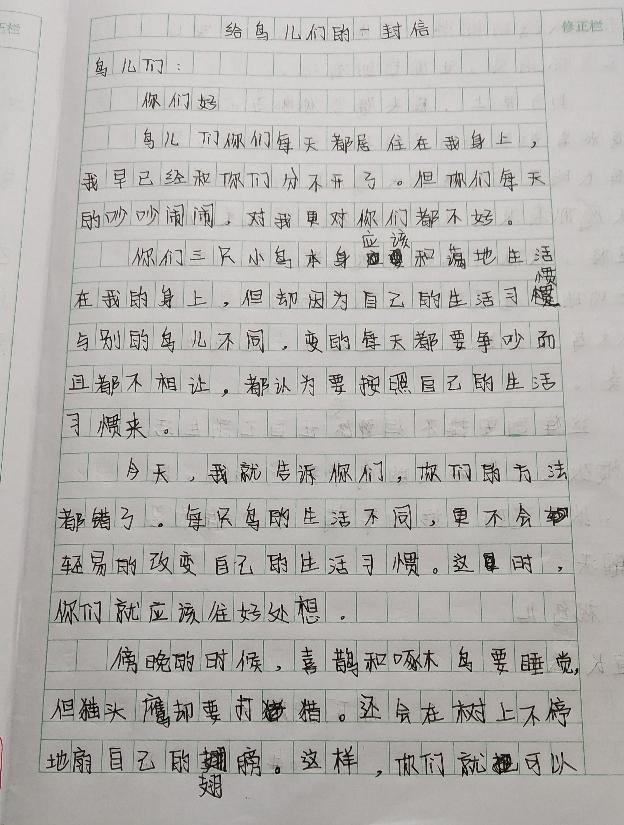 给鸟儿们的一封信
修正栏
正栏
鸟儿们：
你们好
鸟儿们你们每天都居住在我身上，
我早已经和你们分不开了。但你们每天
的吵吵闹闹，对我更对你们都不好。
你们三只小鸟本身应该和蔼地生活
在我的身上，但却因为自己的生活习惯
与别的鸟儿不同，变的每天都要争吵而
且都不相让，都认为要按照自己的生活
习惯来。
今天，我就告诉你们，你们的方法
都错了。每只鸟的生活不同，更不会
轻易的改变自己的生活习惯。这时，
你们就应该往好处想．
傍晚的时候，喜鹊和啄木鸟要睡觉，
但猫头鹰却要打猎。还会在树上不停
地扇自己的翅膀。这样，你们就可以